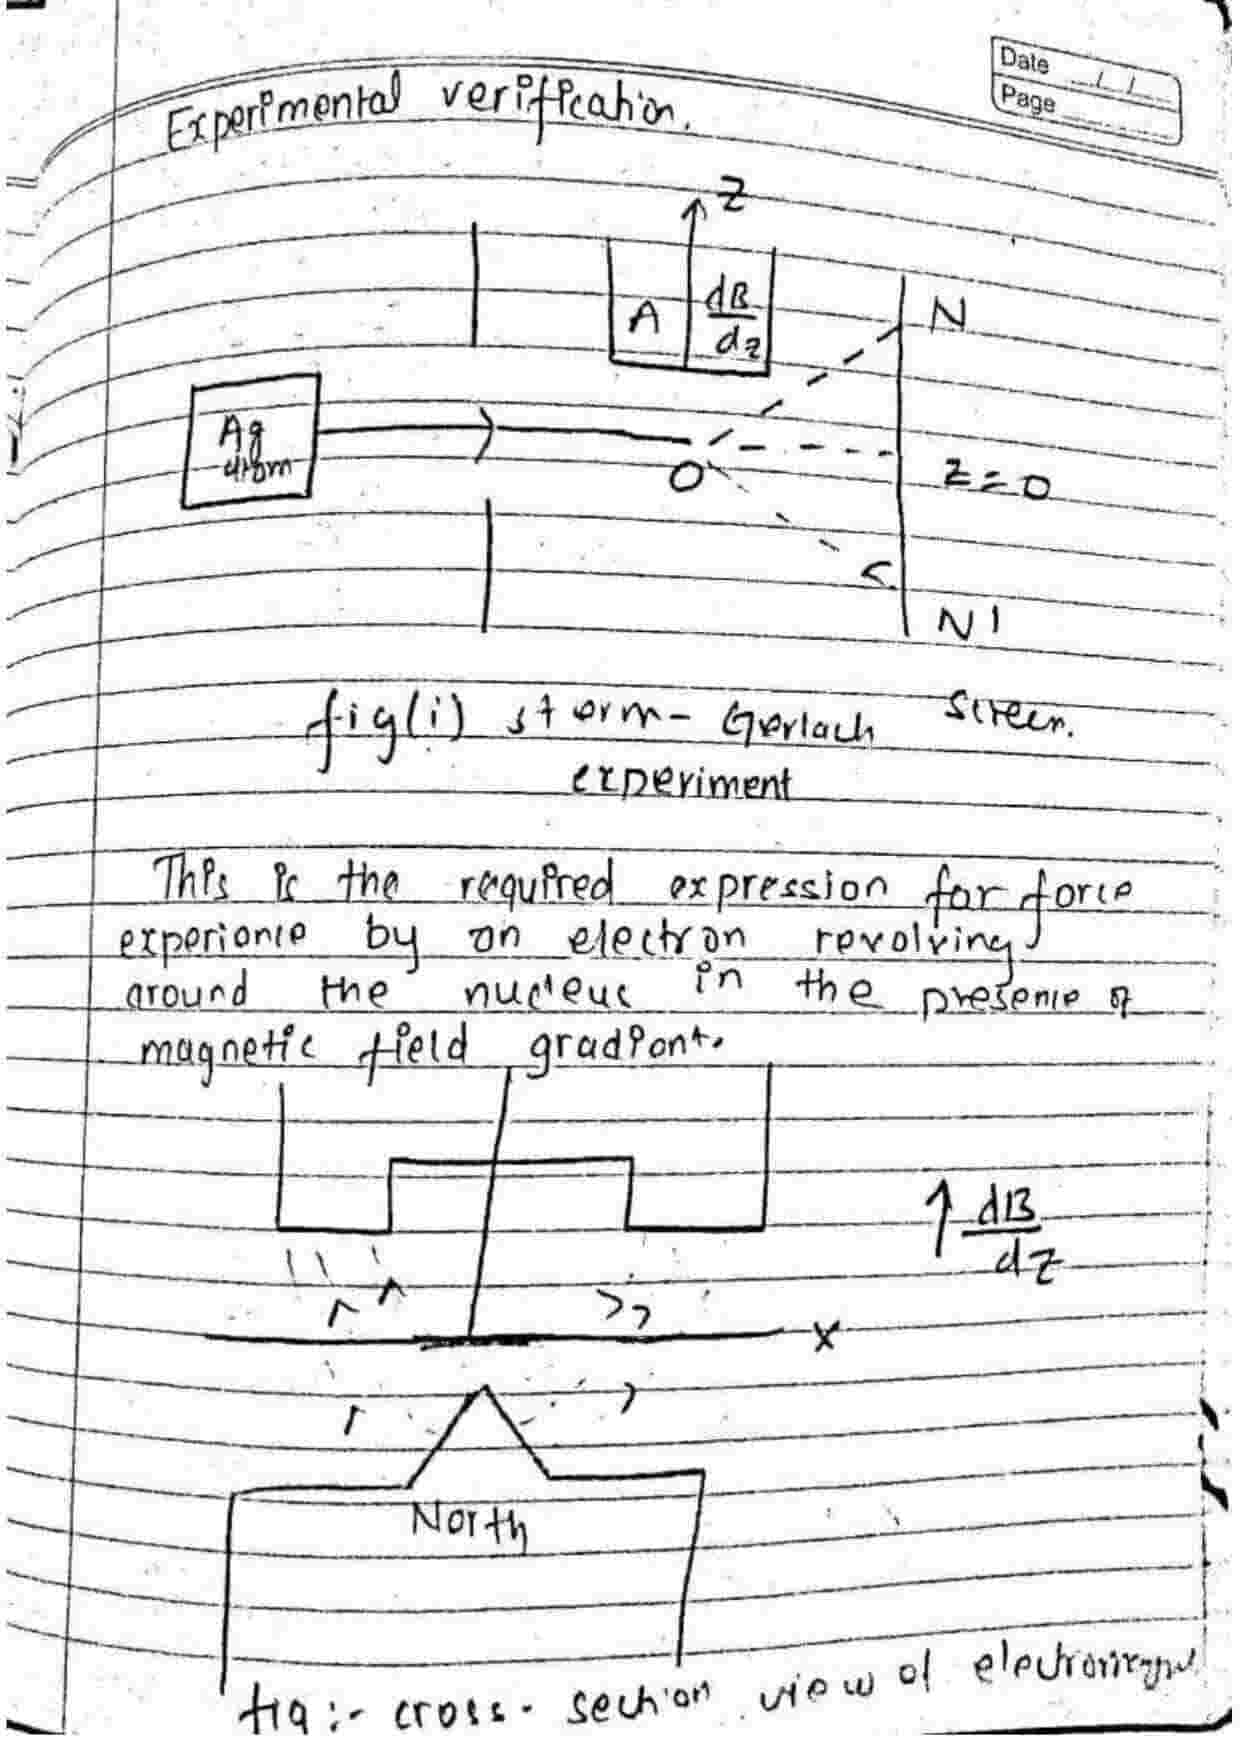 Date / /
Page
Experimental verification.
Z
A
dB
dz
N
Ag
atom
O
z=0
N'
fig(i) storm-Gerlach screen.
experiment
This is the required expression for force
experience by an electron revolving
around the nucleus in the presence of
magnetic field gradient.
dB
dz
X
North
fig:- cross-section view of